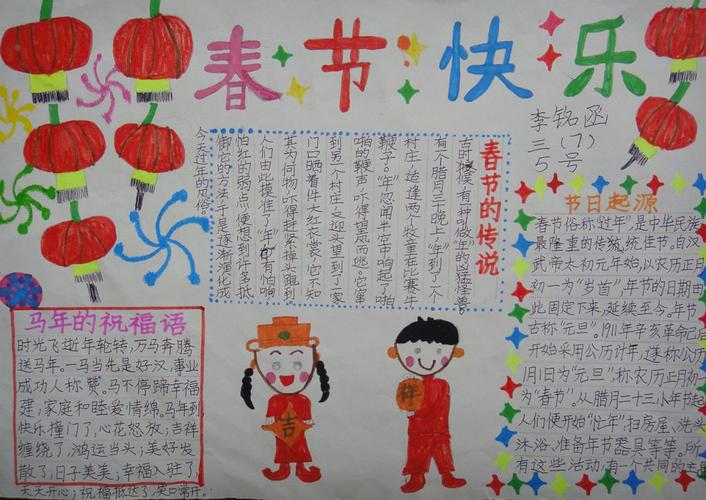 春节快乐
李铭函
三(7)
5号
春节的传说
古时候,有一种叫"年"的凶猛怪兽。
有个腊月三十晚上,"年"到了一个
村庄,适逢两个牧童在比赛牛
鞭子。"年"忽闻半空中响起了啪
啪的鞭声,吓得望风而逃。它窜
到另一个村庄,又迎头望到了一家
门口晒着件大红衣裳,它不知
其为何物,吓得赶紧掉头跑到
人们由此摸准了"年"有怕响
怕红的弱点,便想到许多抵
御它的方法,于是逐渐演化成
今天过年的风俗。
节日起源
春节俗称"过年",是中华民族
最隆重的传统佳节。自汉
武帝太初元年始,以农历正月
初一为"岁首",年节的日期由
此固定下来,延续至今。年节
古称"元旦"。1911年辛亥革命已后
开始采用公历计年,遂称公历
1月1日为"元旦",称农历正月初一
为"春节"。从腊月二十三小年节起
人们便开始"忙年":扫房屋、洗头
沐浴、准备年节器具等等。所
有这些活动,有一个共同的主
马年的祝福语
时光飞逝年轮转,万马奔腾
送马年。一马当先是好汉,事业
成功人称赞。马不停蹄幸福
建,家庭和睦爱情绵。马年到,
快乐撞门了,心花怒放;吉祥
缠绕了,鸿运当头;美好发
散了,日子美美;幸福入驻了,
天天开心;祝福抵达了,笑口常开。
吉
祥